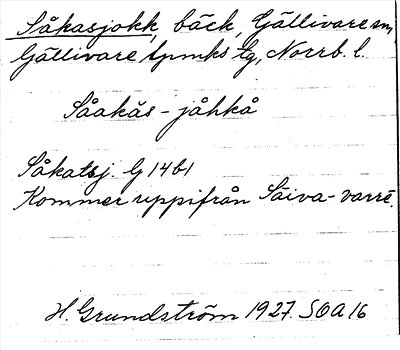 Såkasjokk, bäck, Gällivare sn,
Gällivare lpmks tg, Norrb. l.
Såakås - jåhkå
Såkatsj. G 14 b1
Kommer uppifrån Sáiva-varrē.
H. Grundström 1927. SOA 16